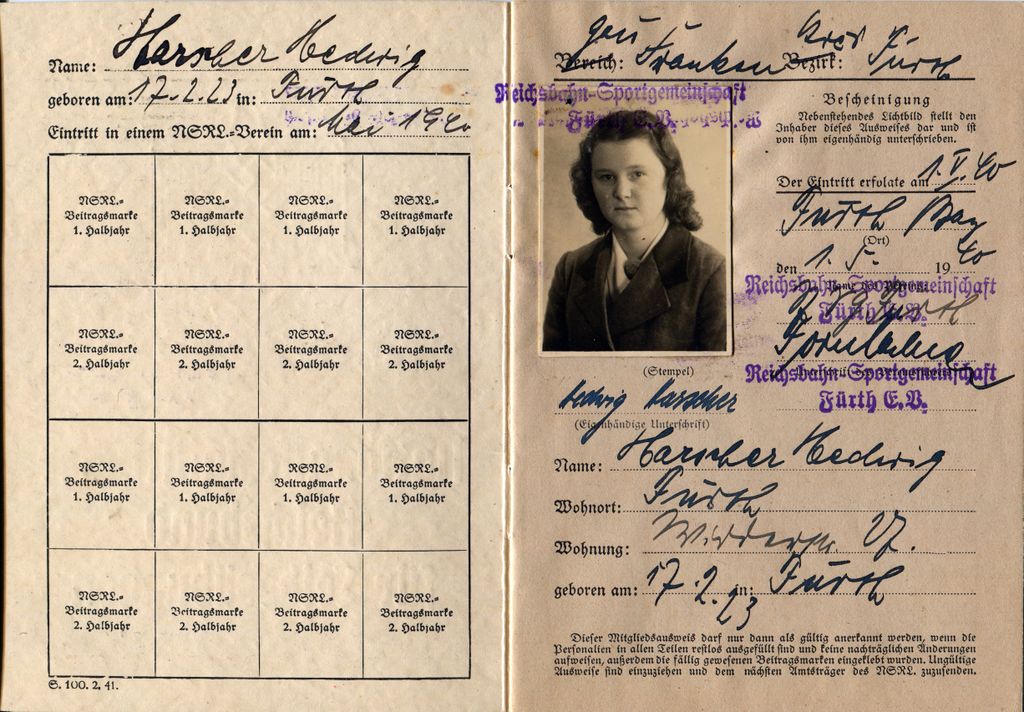 Name: Harscher Hedwig
geboren am: 17.2.23 in: Fürth
Eintritt in einem NSRL.=Verein am: Mai 1940
NSRL.= NSRL.= NSRL.= NSRL.=
Beitragsmarke Beitragsmarke Beitragsmarke Beitragsmarke
1. Halbjahr 1. Halbjahr 1. Halbjahr 1. Halbjahr
NSRL.= NSRL.= NSRL.= NSRL.=
Beitragsmarke Beitragsmarke Beitragsmarke Beitragsmarke
2. Halbjahr 2. Halbjahr 2. Halbjahr 2. Halbjahr
NSRL.= NSRL.= NSRL.= NSRL.=
Beitragsmarke Beitragsmarke Beitragsmarke Beitragsmarke
1. Halbjahr 1. Halbjahr 1. Halbjahr 1. Halbjahr
NSRL.= NSRL.= NSRL.= NSRL.=
Beitragsmarke Beitragsmarke Beitragsmarke Beitragsmarke
2. Halbjahr 2. Halbjahr 2. Halbjahr 2. Halbjahr
S. 100. 2. 41.
Gau Kreis
Bereich: Franken Bezirk: Fürth
Reichsbahn-Sportgemeinschaft
Fürth E.V.
Bescheinigung
Nebenstehendes Lichtbild stellt den
Inhaber dieses Ausweises dar und ist
von ihm eigenhändig unterschrieben.
Der Eintritt erfolgte am 1.V.40
Fürth Bay
(Ort)
den 1.5. 1940
Reichsbahn-Sportgemeinschaft
Fürth E.V.
(Stempel)
Reichsbahn-Sportgemeinschaft
Fürth E.V.
Hedwig Harscher
(Eigenhändige Unterschrift)
Name: Harscher Hedwig
Wohnort: Fürth
Wohnung: 27.
geboren am: 17.2.23 in: Fürth
Dieser Mitgliedsausweis darf nur dann als gültig anerkannt werden, wenn die
Personalien in allen Teilen restlos ausgefüllt sind und keine nachträglichen Änderungen
aufweisen, außerdem die fällig gewesenen Beitragsmarken eingeklebt wurden. Ungültige
Ausweise sind einzuziehen und dem nächsten Amtsträger des NSRL. zuzusenden.